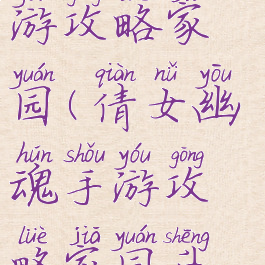 游攻略家
yuán qiàn nǚ yōu
园(倩女幽
hún shǒu yóu gōng
魂手游攻
lüè jiā yuán shēng